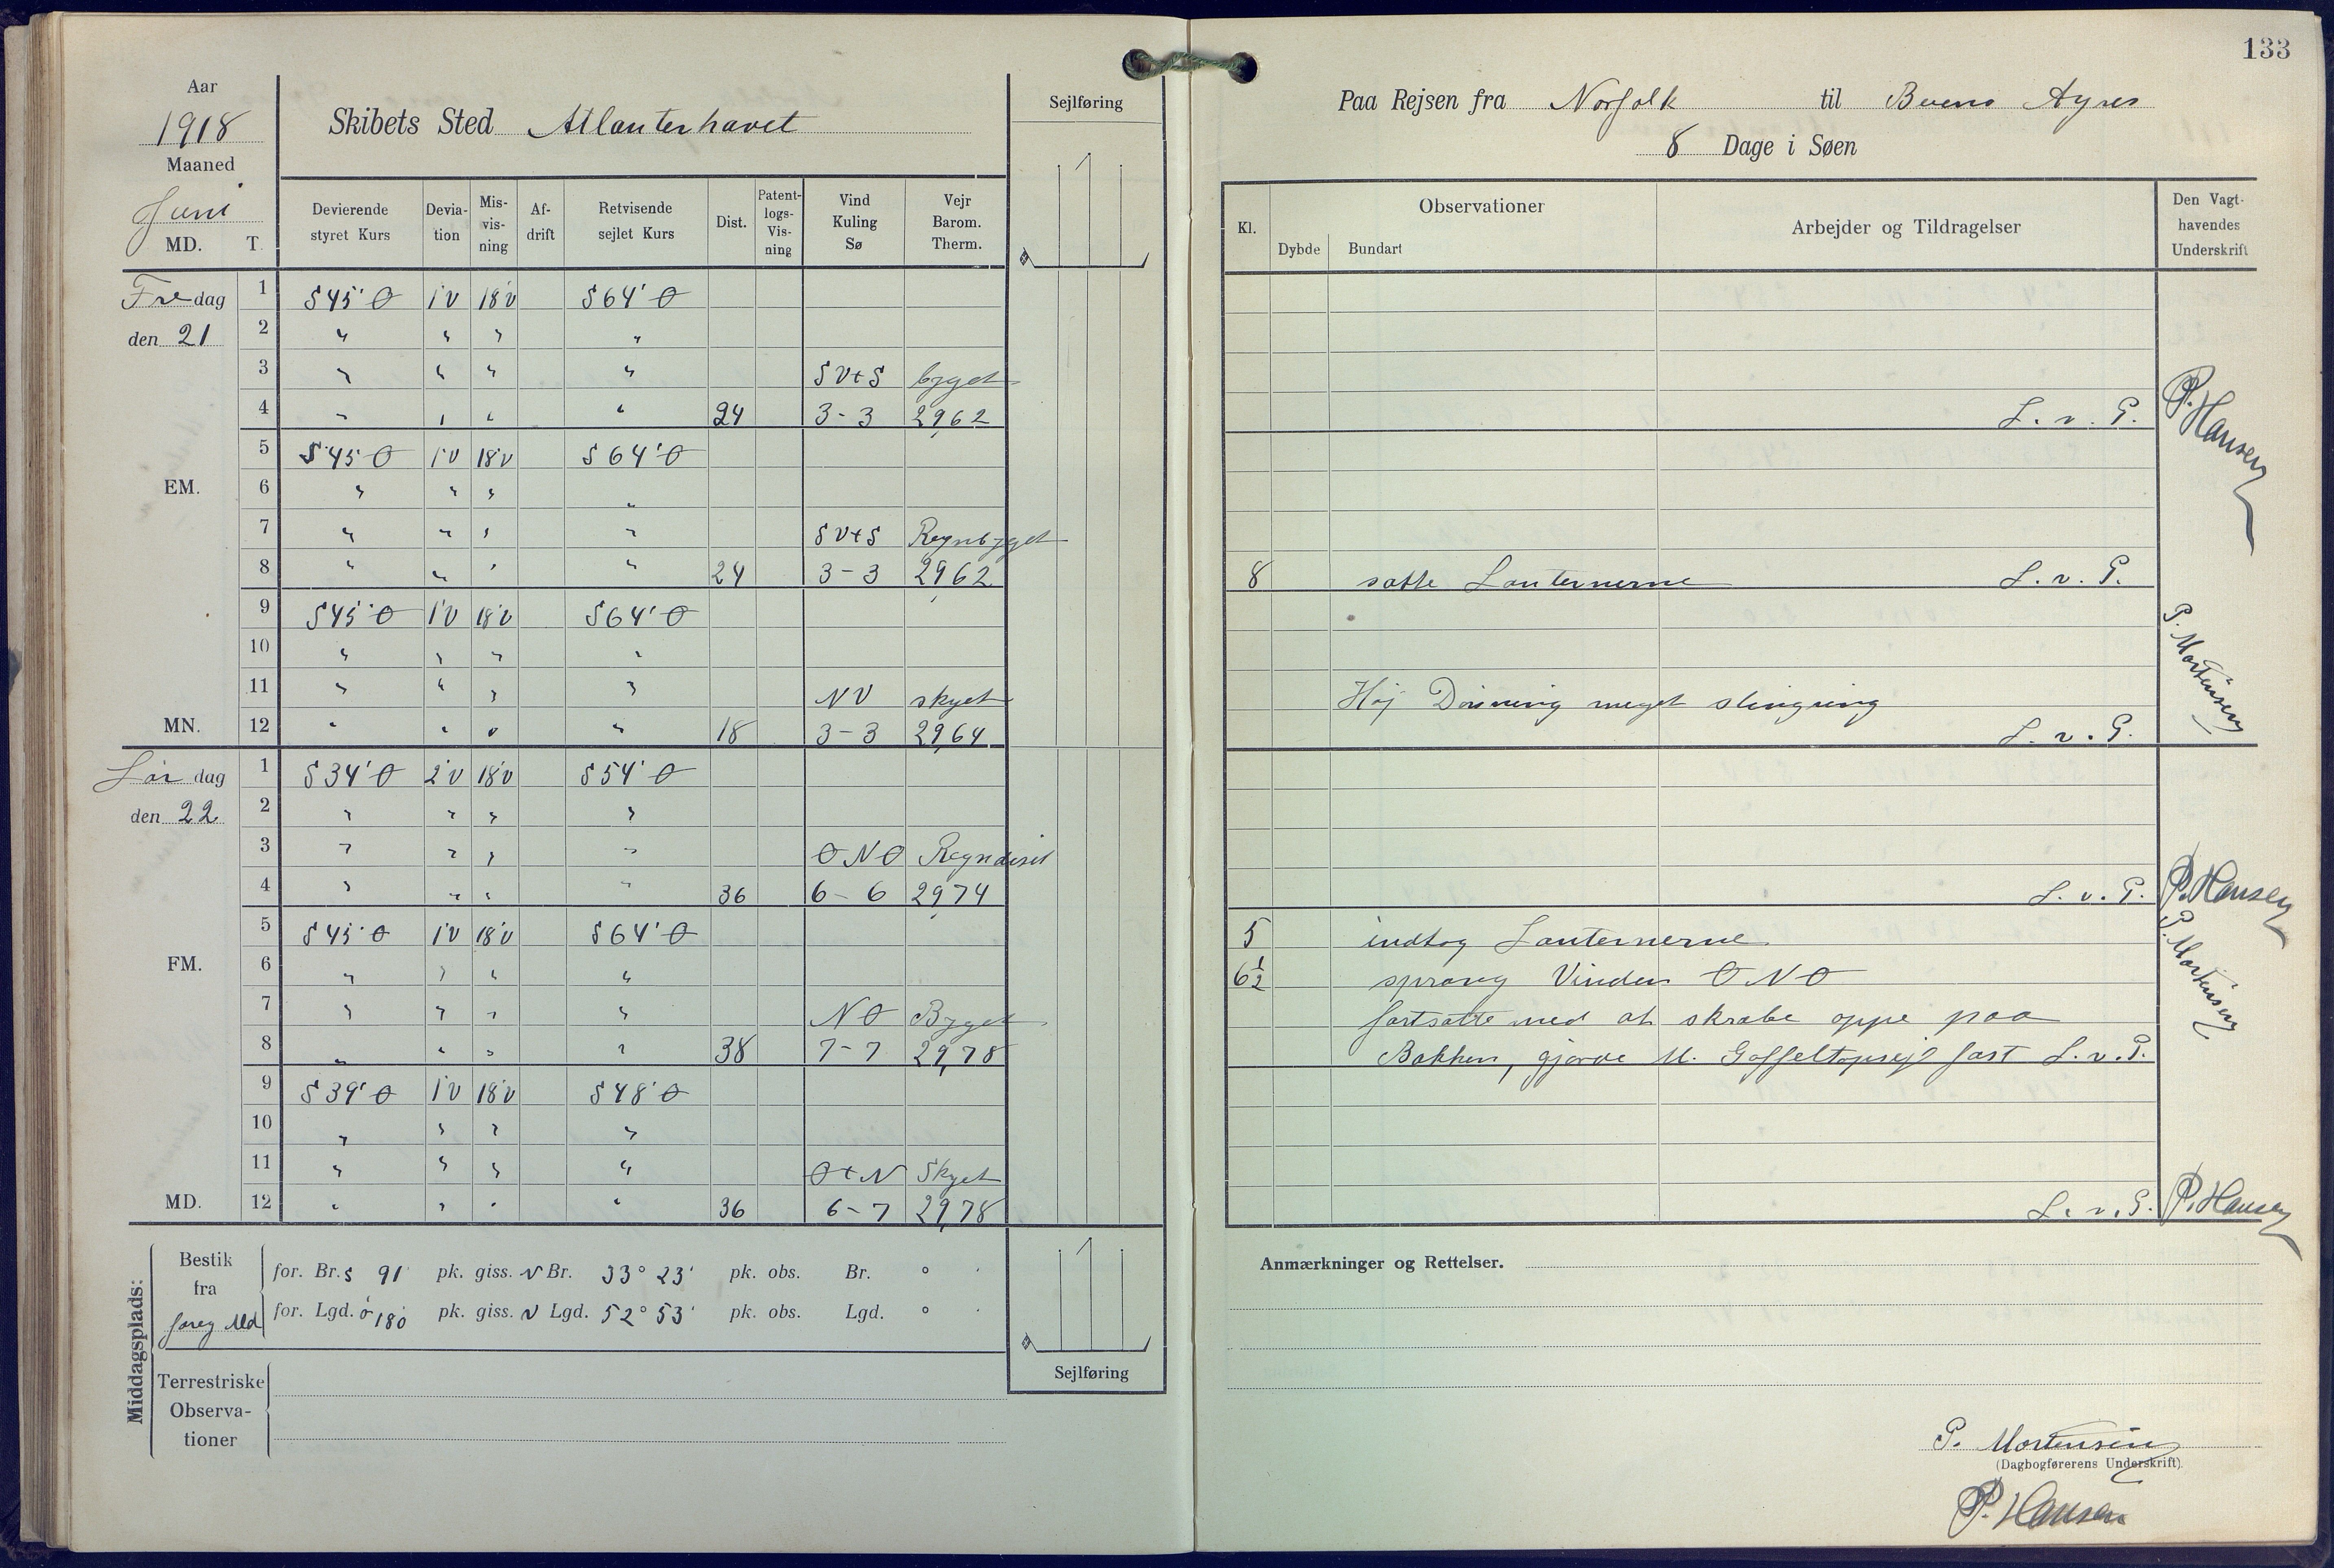 133
Aar
1918
Maaned
Juni
MD. T.
Skibets Sted Atlanterhavet
Sejlføring
Devierende styret Kurs
Deviation
Misvisning
Afdrift
Retvisende sejlet Kurs
Dist.
Patentlogs-Visning
Vind Kuling Sø
Vejr Barom. Therm.
Fredag 1 S45°O 1°V 18°V S64°O
den 21 2 " " " "
3 " " " " SVtS byget
4 " " " " 24 3-3 29,62
5 S45°O 1°V 18°V S64°O
EM. 6 " " " "
7 " " " " SVtS Regnbyget
8 " " " " 24 3-3 29,62
9 S45°O 1°V 18°V S64°O
10 " " " "
11 " " " " NV skyet
MN. 12 " " " " 18 3-3 29,64
Lørdag 1 S34°O 2°V 18°V S54°O
den 22 2 " " " "
3 " " " " ONO Regndiset
4 " " " " 36 6-6 29,74
5 S45°O 1°V 18°V S64°O
FM. 6 " " " "
7 " " " " NO Byget
8 " " " " 38 7-7 29,78
9 S39°O 1°V 18°V S48°O
10 " " " "
11 " " " " OtN Skyet
MD. 12 " " " " 36 6-7 29,78
Middagsplads:
Bestik fra foreg Md
for. Br. S 91' pk. giss. N Br. 33° 23' pk. obs. Br. ° '
for. Lgd. Ø 180 pk. giss. V Lgd. 52° 53' pk. obs. Lgd. ° '
Terrestriske Observationer
Sejlføring
Paa Rejsen fra Norfolk til Buenos Ayres
8 Dage i Søen
Kl.
Observationer
Dybde Bundart
Arbejder og Tildragelser
Den Vagthavendes Underskrift
L. v. P. P. Hansen
8 satte Lanternerne L. v. P.
P. Mortensen
Høj Dønning meget slingring
L. v. P.
L. v. P. P. Hansen
5 indtog Lanternerne
6½ sprang Vinden ONO
P. Mortensen
fortsatte med at skrabe oppe paa
Bakken, gjorde M. Gaffeltopsejl fast L. v. P.
L. v. P. P. Hansen
Anmærkninger og Rettelser.
P. Mortensen
(Dagbogførerens Underskrift).
P. Hansen